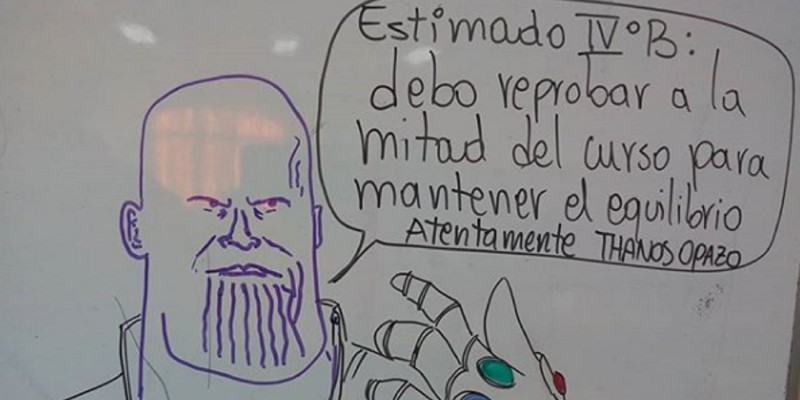 Estimado IV°B:
debo reprobar a la
mitad del curso para
mantener el equilibrio
Atentamente THANOS OPAZO